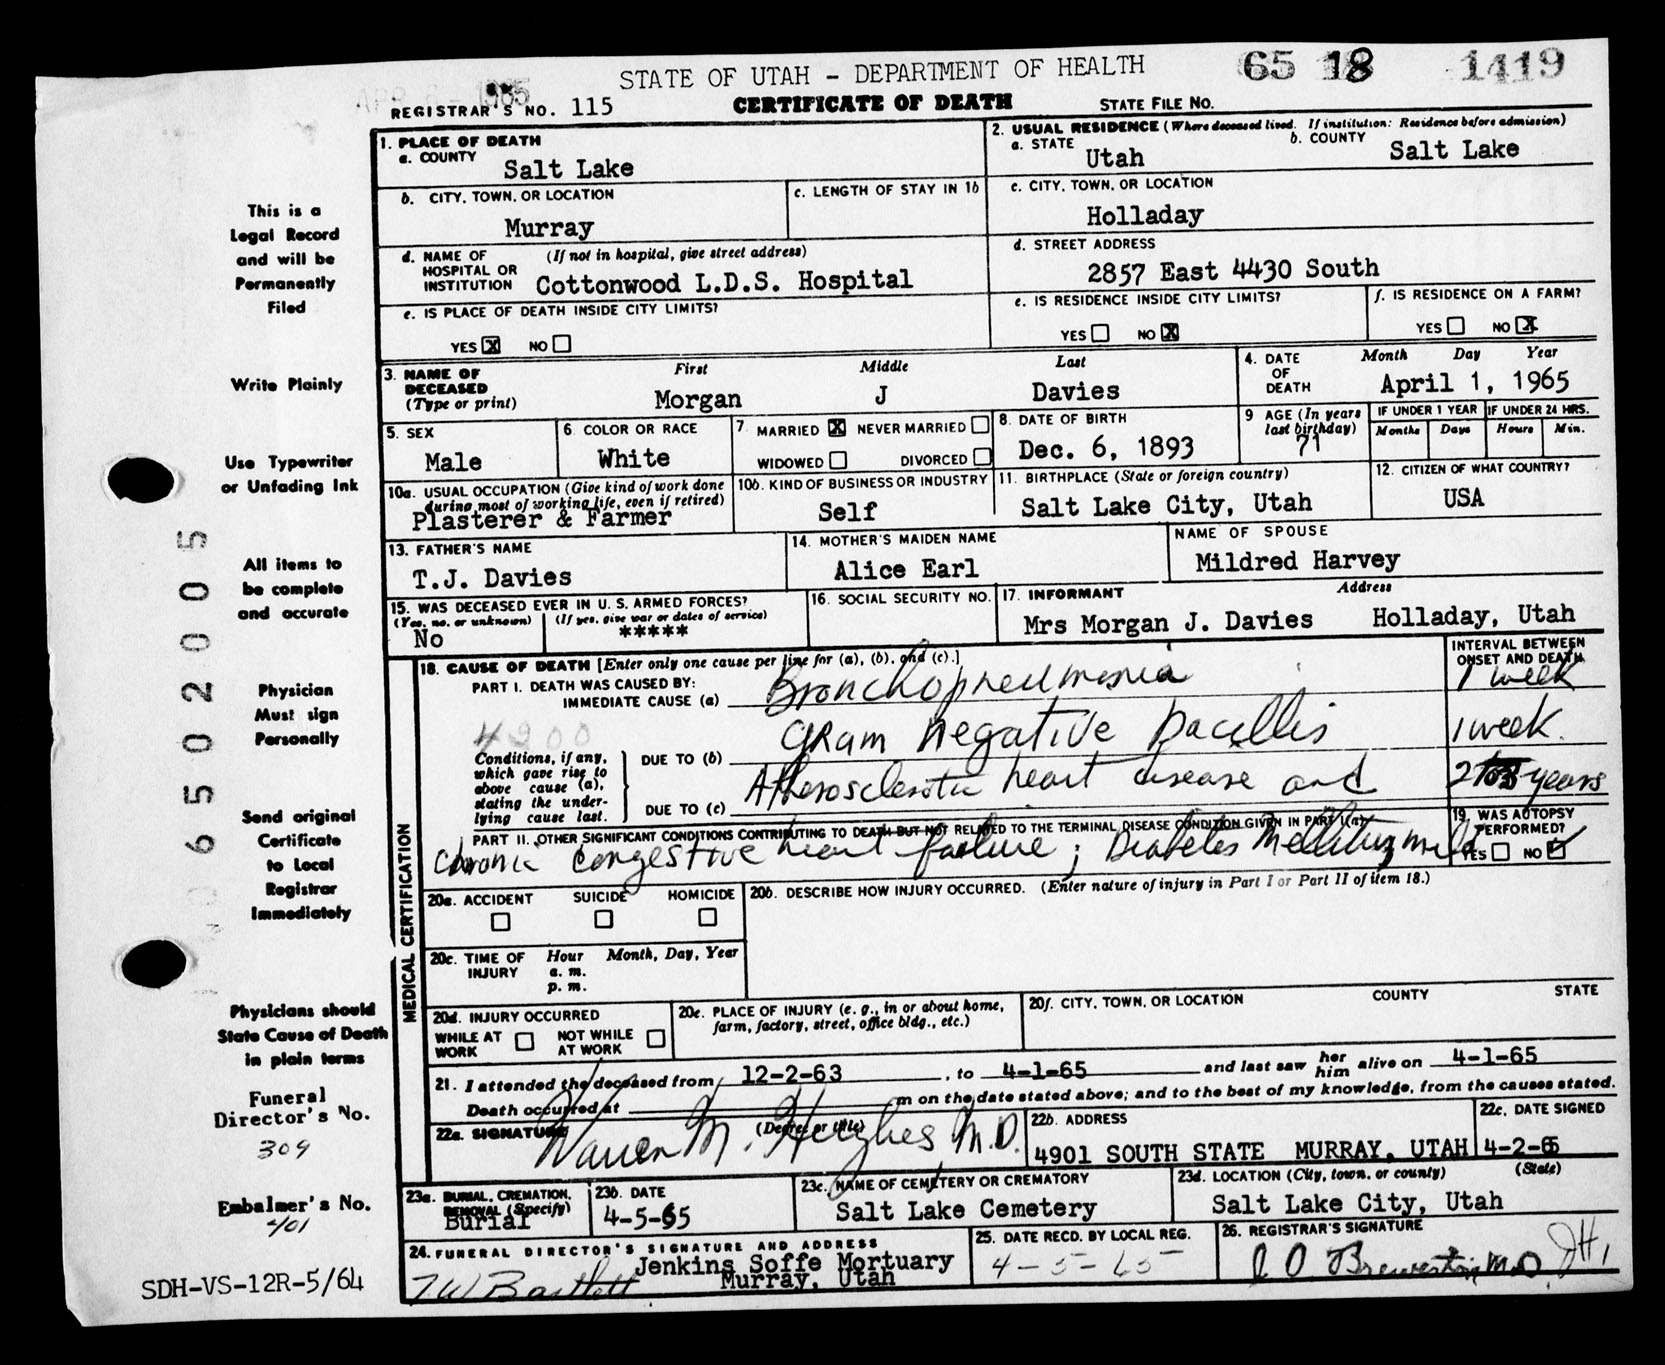 STATE OF UTAH - DEPARTMENT OF HEALTH 65 18 1419
REGISTRAR'S NO. 115 CERTIFICATE OF DEATH STATE FILE NO.
1. PLACE OF DEATH
a. COUNTY
Salt Lake
2. USUAL RESIDENCE (Where deceased lived. If institution: Residence before admission)
a. STATE Utah b. COUNTY Salt Lake
b. CITY, TOWN, OR LOCATION
Murray
c. LENGTH OF STAY IN 1b
c. CITY, TOWN, OR LOCATION
Holladay
d. NAME OF HOSPITAL OR INSTITUTION (If not in hospital, give street address)
Cottonwood L.D.S. Hospital
d. STREET ADDRESS
2857 East 4430 South
e. IS PLACE OF DEATH INSIDE CITY LIMITS?
YES X NO
e. IS RESIDENCE INSIDE CITY LIMITS?
YES NO X
f. IS RESIDENCE ON A FARM?
YES NO X
3. NAME OF DECEASED (Type or print)
First Middle Last
Morgan J Davies
4. DATE OF DEATH Month Day Year
April 1, 1965
5. SEX
Male
6. COLOR OR RACE
White
7. MARRIED X NEVER MARRIED
WIDOWED DIVORCED
8. DATE OF BIRTH
Dec. 6, 1893
9 AGE (In years last birthday)
71
IF UNDER 1 YEAR IF UNDER 24 HRS.
Months Days Hours Min.
10a. USUAL OCCUPATION (Give kind of work done during most of working life, even if retired)
Plasterer & Farmer
10b. KIND OF BUSINESS OR INDUSTRY
Self
11. BIRTHPLACE (State or foreign country)
Salt Lake City, Utah
12. CITIZEN OF WHAT COUNTRY?
USA
13. FATHER'S NAME
T.J. Davies
14. MOTHER'S MAIDEN NAME
Alice Earl
NAME OF SPOUSE
Mildred Harvey
15. WAS DECEASED EVER IN U. S. ARMED FORCES?
(Yes, no. or unknown) (If yes, give war or dates of service)
No *****
16. SOCIAL SECURITY NO.
17. INFORMANT Address
Mrs Morgan J. Davies Holladay, Utah
MEDICAL CERTIFICATION
18. CAUSE OF DEATH [Enter only one cause per line for (a), (b), and (c).]
INTERVAL BETWEEN ONSET AND DEATH
PART I. DEATH WAS CAUSED BY:
IMMEDIATE CAUSE (a) Bronchopneumonia 1 week
4200
Conditions, if any, which gave rise to above cause (a), stating the underlying cause last.
DUE TO (b) Gram negative bacillis 1 week.
DUE TO (c) Atherosclerotic heart disease and 2 years
PART II. OTHER SIGNIFICANT CONDITIONS CONTRIBUTING TO DEATH BUT NOT RELATED TO THE TERMINAL DISEASE CONDITION GIVEN IN PART I(a)
chronic congestive heart failure; Diabetes Mellitus, mild
19. WAS AUTOPSY PERFORMED?
YES NO ✓
20a. ACCIDENT SUICIDE HOMICIDE
20b. DESCRIBE HOW INJURY OCCURRED. (Enter nature of injury in Part I or Part II of item 18.)
20c. TIME OF INJURY Hour Month, Day, Year
a. m.
p. m.
20d. INJURY OCCURRED
WHILE AT WORK NOT WHILE AT WORK
20e. PLACE OF INJURY (e. g., in or about home, farm, factory, street, office bldg., etc.)
20f. CITY, TOWN, OR LOCATION COUNTY STATE
21. I attended the deceased from 12-2-63, to 4-1-65 and last saw her him alive on 4-1-65
Death occurred at m on the date stated above; and to the best of my knowledge, from the causes stated.
22a. SIGNATURE (Degree or title)
Warren M. Hughes M.D.
22b. ADDRESS
4901 SOUTH STATE MURRAY, UTAH
22c. DATE SIGNED
4-2-65
23a. BURIAL, CREMATION, REMOVAL (Specify)
Burial
23b. DATE
4-5-65
23c. NAME OF CEMETERY OR CREMATORY
Salt Lake Cemetery
23d. LOCATION (City, town, or county) (State)
Salt Lake City, Utah
24. FUNERAL DIRECTOR'S SIGNATURE AND ADDRESS
Jenkins Soffe Mortuary
Murray, Utah
TW Bartlett
25. DATE RECD. BY LOCAL REG.
4-5-65
26. REGISTRAR'S SIGNATURE
This is a
Legal Record
and will be
Permanently
Filed
Write Plainly
Use Typewriter
or Unfading Ink
All items to
be complete
and accurate
Physician
Must sign
Personally
Send original
Certificate
to Local
Registrar
Immediately
Physicians should
State Cause of Death
in plain terms
Funeral
Director's No.
309
Embalmer's No.
401
SDH-VS-12R-5/64
6502005